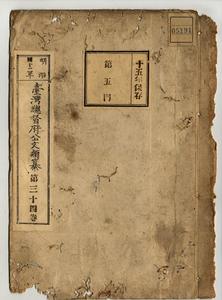 05191
十五年保存
第五門
明治
臺灣總督府公文類纂
第三十四卷